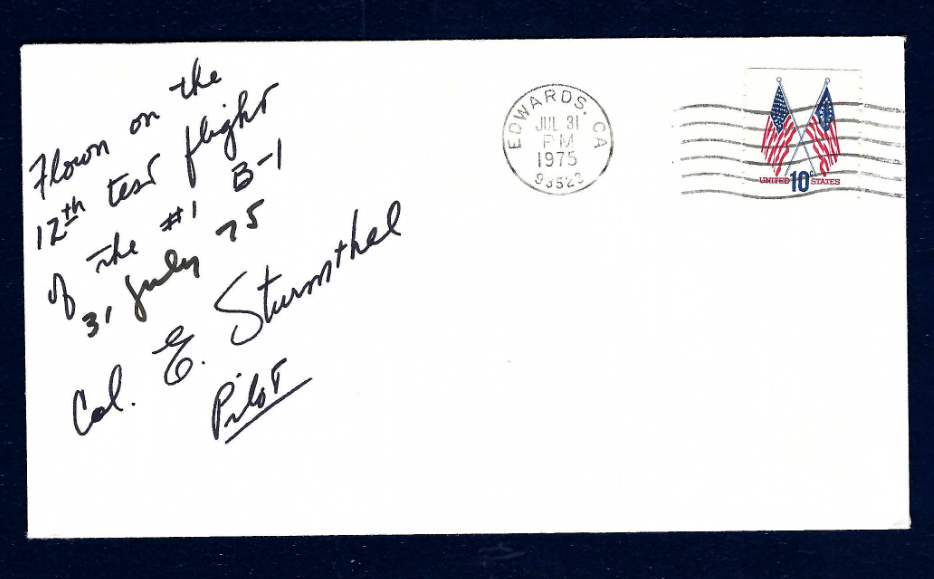 Flown on the
12th test flight
of the #1 B-1
31 July 75
Col. E. Sturmthal
Pilot
EDWARDS, CA
JUL 31
PM
1975
93523
UNITED 10c STATES